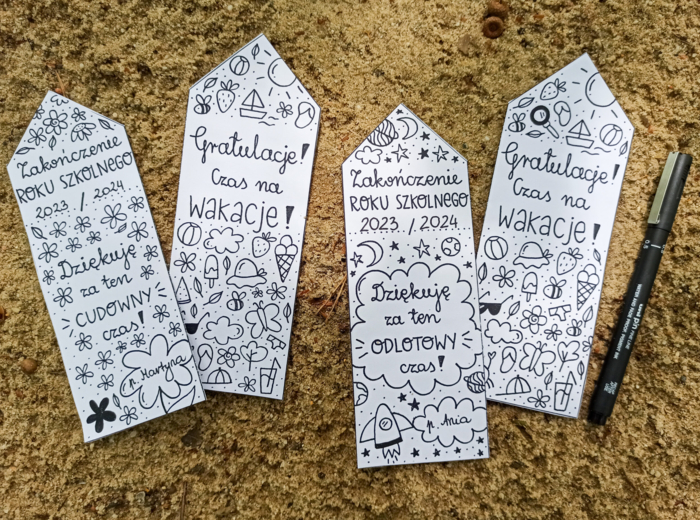 Zakończenie
ROKU SZKOLNEGO
2023 / 2024
Dziękuję
za ten
CUDOWNY
czas!
p. Martyna
Gratulacje!
Czas na
wakacje!
Zakończenie
ROKU SZKOLNEGO
2023 / 2024
Dziękuję
za ten
ODLOTOWY
czas!
p. Ania
Gratulacje!
Czas na
wakacje!
uni pin